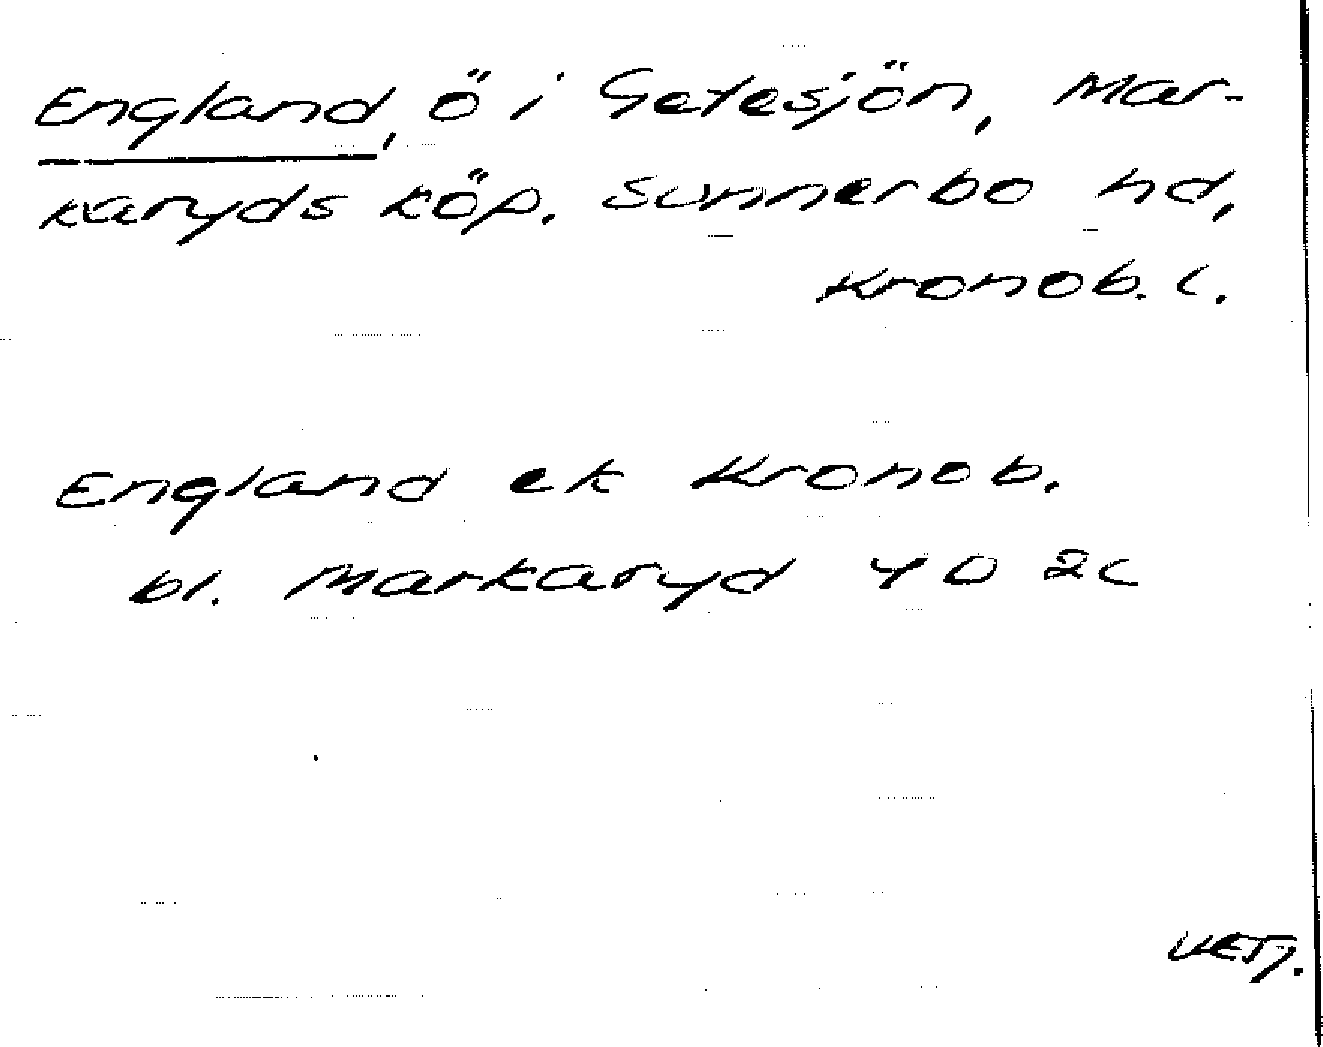 England, ö i Getesjön, Mar-
karyds köp. Sunnerbo hd,
Kronob. l.
England ek Kronob.
bl. Markaryd 4D 2c